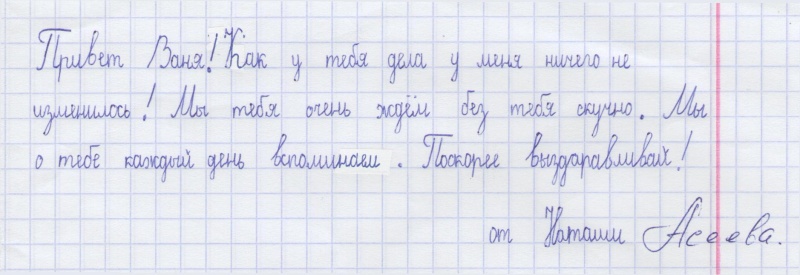 Привет Ваня! Как у тебя дела у меня ничего не
изменилось! Мы тебя очень ждём без тебя скучно. Мы
о тебе каждый день вспоминаем. Поскорее выздаравливай!
от Наташи Асеева.